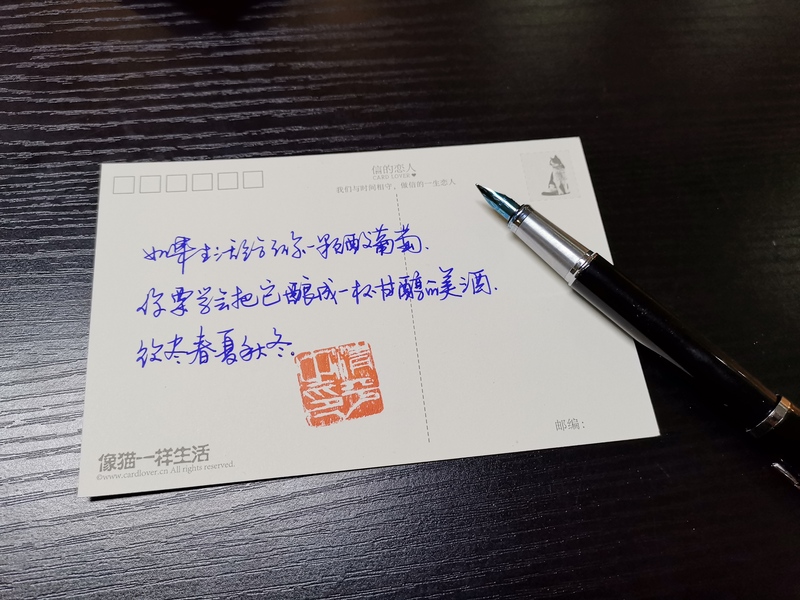 信的恋人
CARD LOVER
我们与时间相守，做信的一生恋人
如果生活给了你一颗酸葡萄.
你要学会把它酿成一杯甘醇的美酒.
饮尽春夏秋冬.
邮编：
像猫一样生活
©www.cardlover.cn All rights reserved.